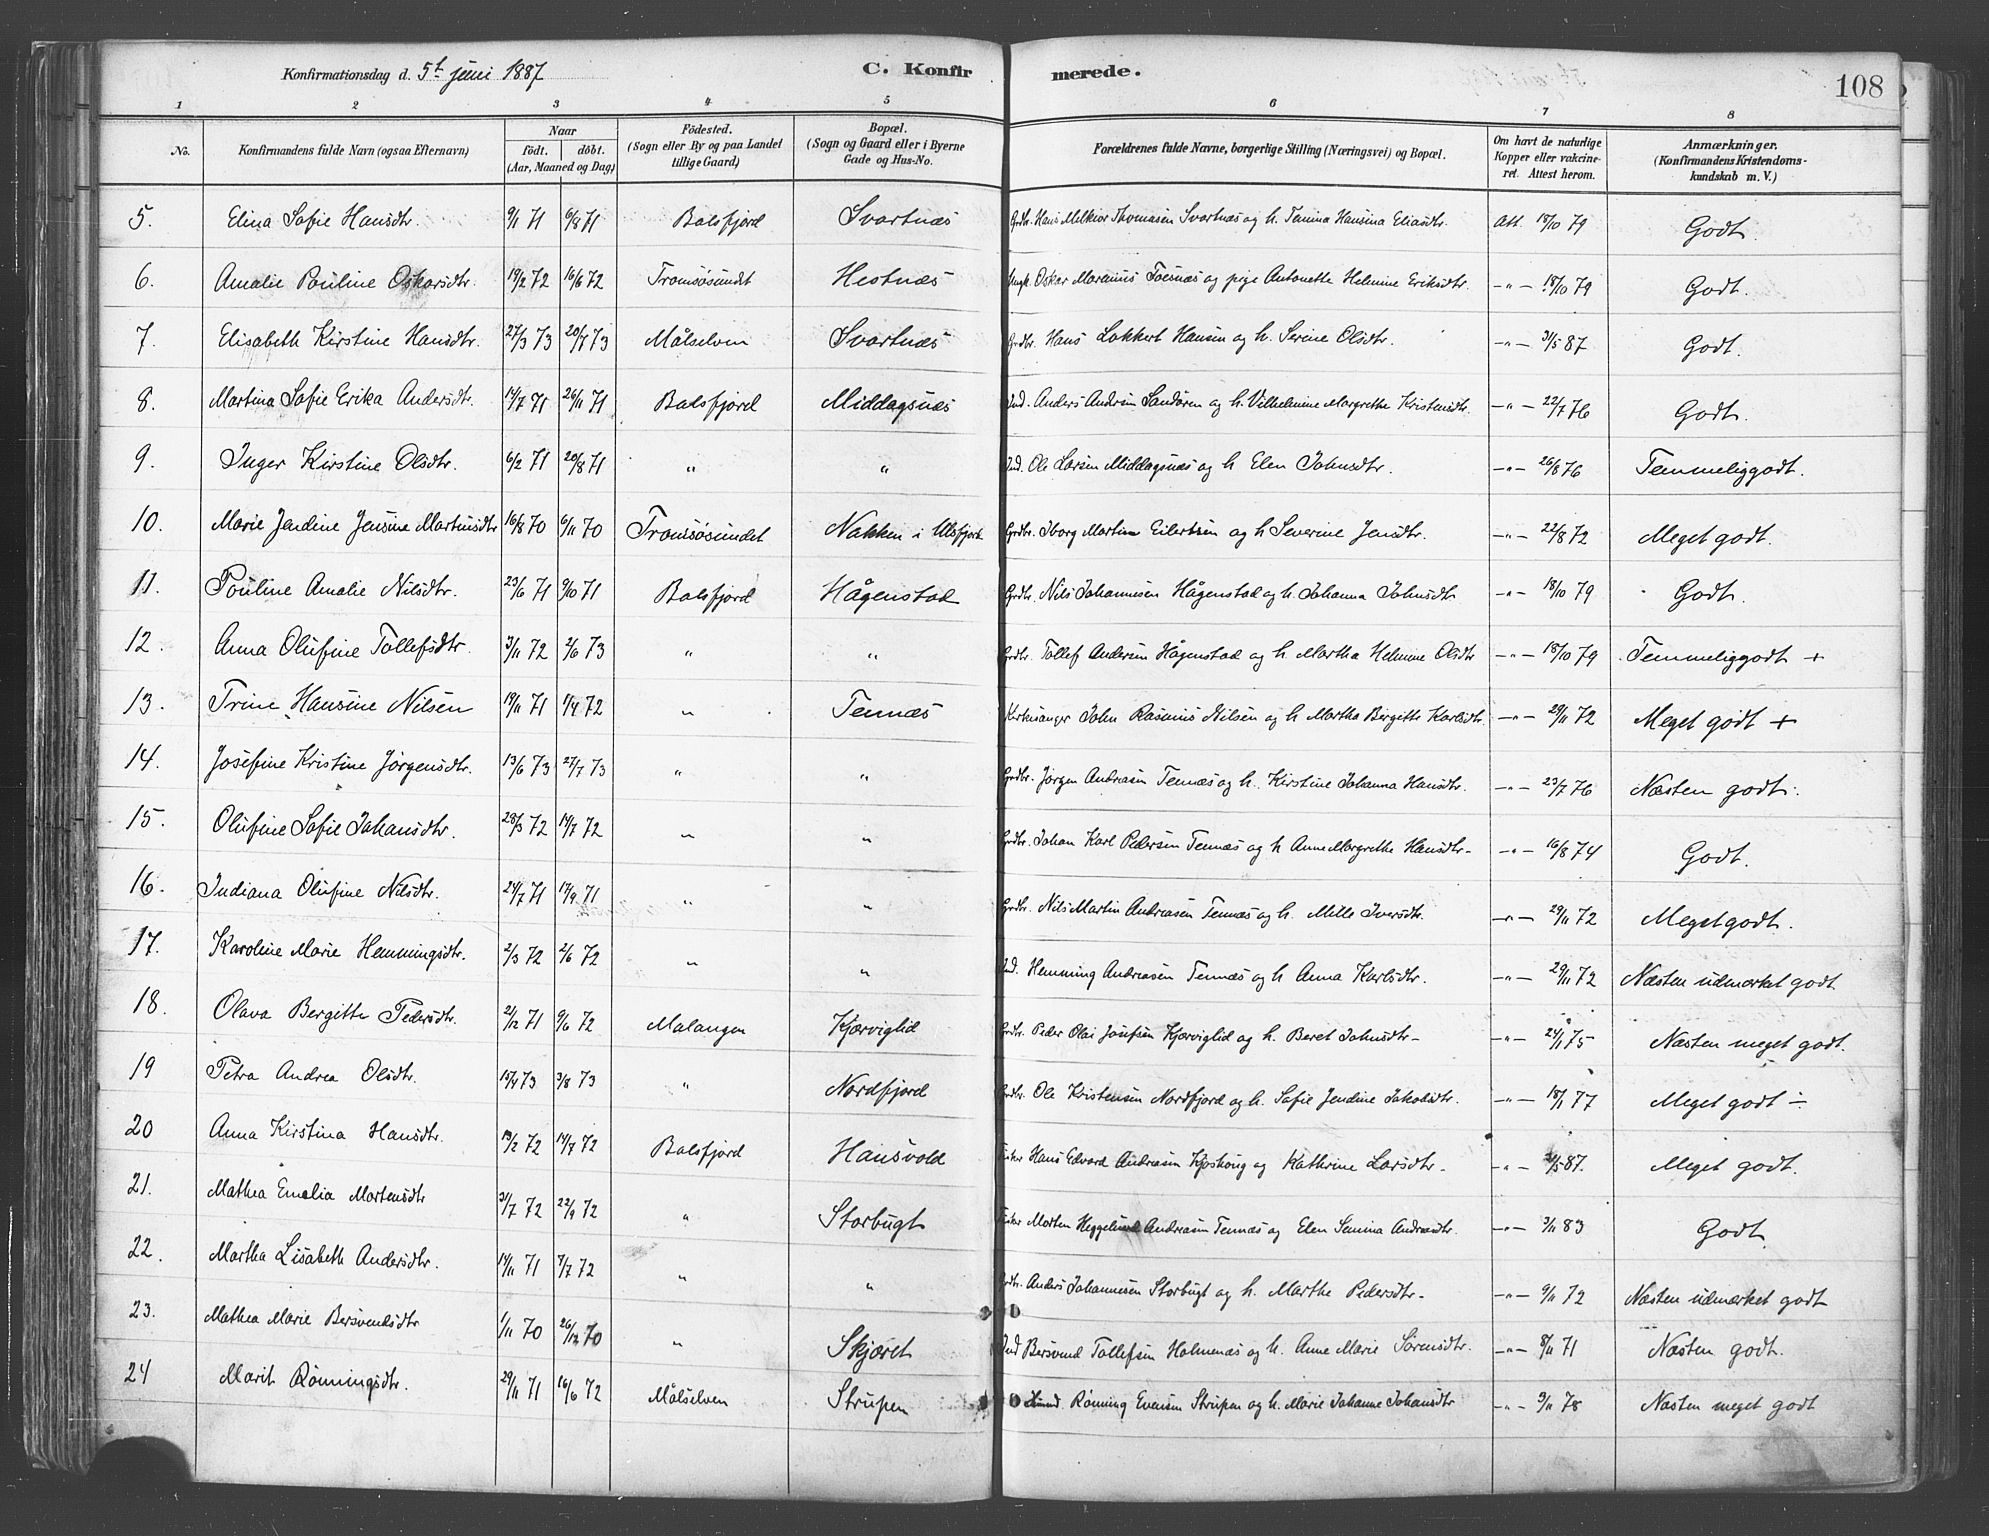 Konfirmationsdag d. 5t juni 1887 C. Konfirmerede. 108
1 2 3 4 5 6 7 8
No. Konfirmandens fulde Navn (ogsaa Efternavn) Naar født. døbt. (Aar, Maaned og Dag) Fødested. (Sogn eller By og paa Landet tillige Gaard) Bopæl. (Sogn og Gaard eller i Byerne Gade og Hus-No. Forældrenes fulde Navne, borgerlige Stilling (Næringsvei) og Bopæl. Om havt de naturlige Kopper eller vakcineret. Attest herom. Anmærkninger. (Konfirmandens Kristendomskundskab m. V.)
5. Elina Sofie Hansdtr. 9/1 71 6/8 71 Balsfjord Svartnæs Grdbr. Hans Melkior Thomasen Svartnæs og h. Tenina Hansina Eliasdtr. Att. 18/10 79 Godt.
6. Amalie Pouline Oskarsdtr. 19/2 72 16/6 72 Tromsøsundt Hestnæs Ungk. Oskar Marinius Toesnæs og pige Antonette Helmine Eriksdtr. -"- 18/10 79 Godt.
7. Elisabeth Kirstine Hansdtr. 27/3 73 20/7 73 Målselven Svartnæs Grdbr. Hans Lokkert Hansen og h. Serine Olsdtr. -"- 31/5 87 Godt.
8. Martina Sofie Erika Andersdtr. 14/7 71 26/11 71 Balsfjord Middagsnæs Ind. Anders Andersen Sandøren og h. Vilhelmine Margrethe Kristensdtr. -"- 22/7 76 Godt.
9. Inger Kirstine Olsdtr. 6/2 71 20/8 71 " " Ind. Ole Larsen Middagsnæs og h Elen Johnsdtr. -"- 26/8 76 Temmeliggodt.
10. Marie Jendine Jensine Martinsdtr 16/8 70 6/11 70 Tromsøsundet Nakken i Ulsfjord Grdbr. Iborg Martin Eilertsen og h Severine Jensdtr. -"- 22/8 72 Meget godt.
11. Pouline Amalie Nilsdtr. 23/6 71 9/10 71 Balsfjord Hågenstad Grdbr. Nils Johannesen Hågenstad og h. Johanna Johnsdtr -"- 18/10 79 Godt.
12. Anna Olufine Tollefsdtr. 3/11 72 2/6 73 " " Grdbr. Tollef Andersen Hågenstad og h Martha Helmine Olsdtr -"- 18/10 79 Temmeliggodt +
13. Trine Hansine Nilsen 19/11 71 1/4 72 " Tennæs Kirkesanger John Rasmus Nilsen og h Martha Bergitte Karlsdtr -"- 29/11 72 Meget godt +
14. Josefine Kristine Jørgensdtr. 13/6 73 27/7 73 " " Grdbr. Jørgen Andreasen Tennæs og h. Kirstine Johanna Hansdtr. -"- 23/7 76 Næsten godt.
15. Olufine Sofie Johansdtr. 28/3 72 14/7 72 " " Grdbr. Johan Karl Pedersen Tennæs og h Anne Margrethe Hansdtr- -"- 16/8 74 Godt.
16. Indiana Olufine Nilsdtr. 24/7 71 17/9 71 " " Grdbr. Nils Martin Andreasen Tennæs og h. Mille Iversdtr. -"- 29/11 72 Megetgodt.
17. Karoline Marie Hemmingsdtr. 2/3 72 2/6 72 " " Ind. Hemming Andreasen Tennæs og h Anna Karlsdtr. -"- 29/11 72 Næsten udmærket godt
18. Olava Bergitte Pedersdtr. 21/12 71 9/6 72 Malangen Kjærviglid Grdbr. Peder Olai Josefsen Kjærviglid og h. Beret Johnsdtr- -"- 24/1 75 Næsten meget godt.
19 Petra Andrea Olsdtr. 15/4 73 3/8 73 " Nordfjord Grdbr. Ole Kristensen Nordfjord og h. Sofie Jendine Jakobsdtr. -"- 18/1 77 Meget godt ÷
20 Anna Kirstina Hansdtr. 19/2 72 14/7 72 Balsfjord Hansvold Fisker Hans Edvard Andreasen og Kathrine Larsdtr- -"- 87. Meget godt.
21. Mathea Emelia Mortensdtr 31/7 72 22/9 72 " Storbugt Fisker Morten Heggelund Andreasen Tennæs og Elen Semina Andreasdtr. -"- 3/11 83 Godt.
22. Martha Lisabeth Andersdtr. 14/11 71 7/7 72 " " Grdbr. Anders Johannesen Storbugt og h. Marthe Pedersdtr- -"- 9/11 72 Næsten udmærket godt
23. Mathea Marie Bersvendsdtr 1/11 70 26/12 70 " Skjæret Ind Bersvend Tollefsen Holmenæs og h. Anne Marie Sørensdtr. -"- 8/11 71 Næsten godt.
24 Marit Rønningsdtr. 29/11 71 16/6 72 Målselven Strupen Rønning Evensen Strupen og h. Marie Johanne Johansdtr -"- 9/11 78 Næsten meget godt